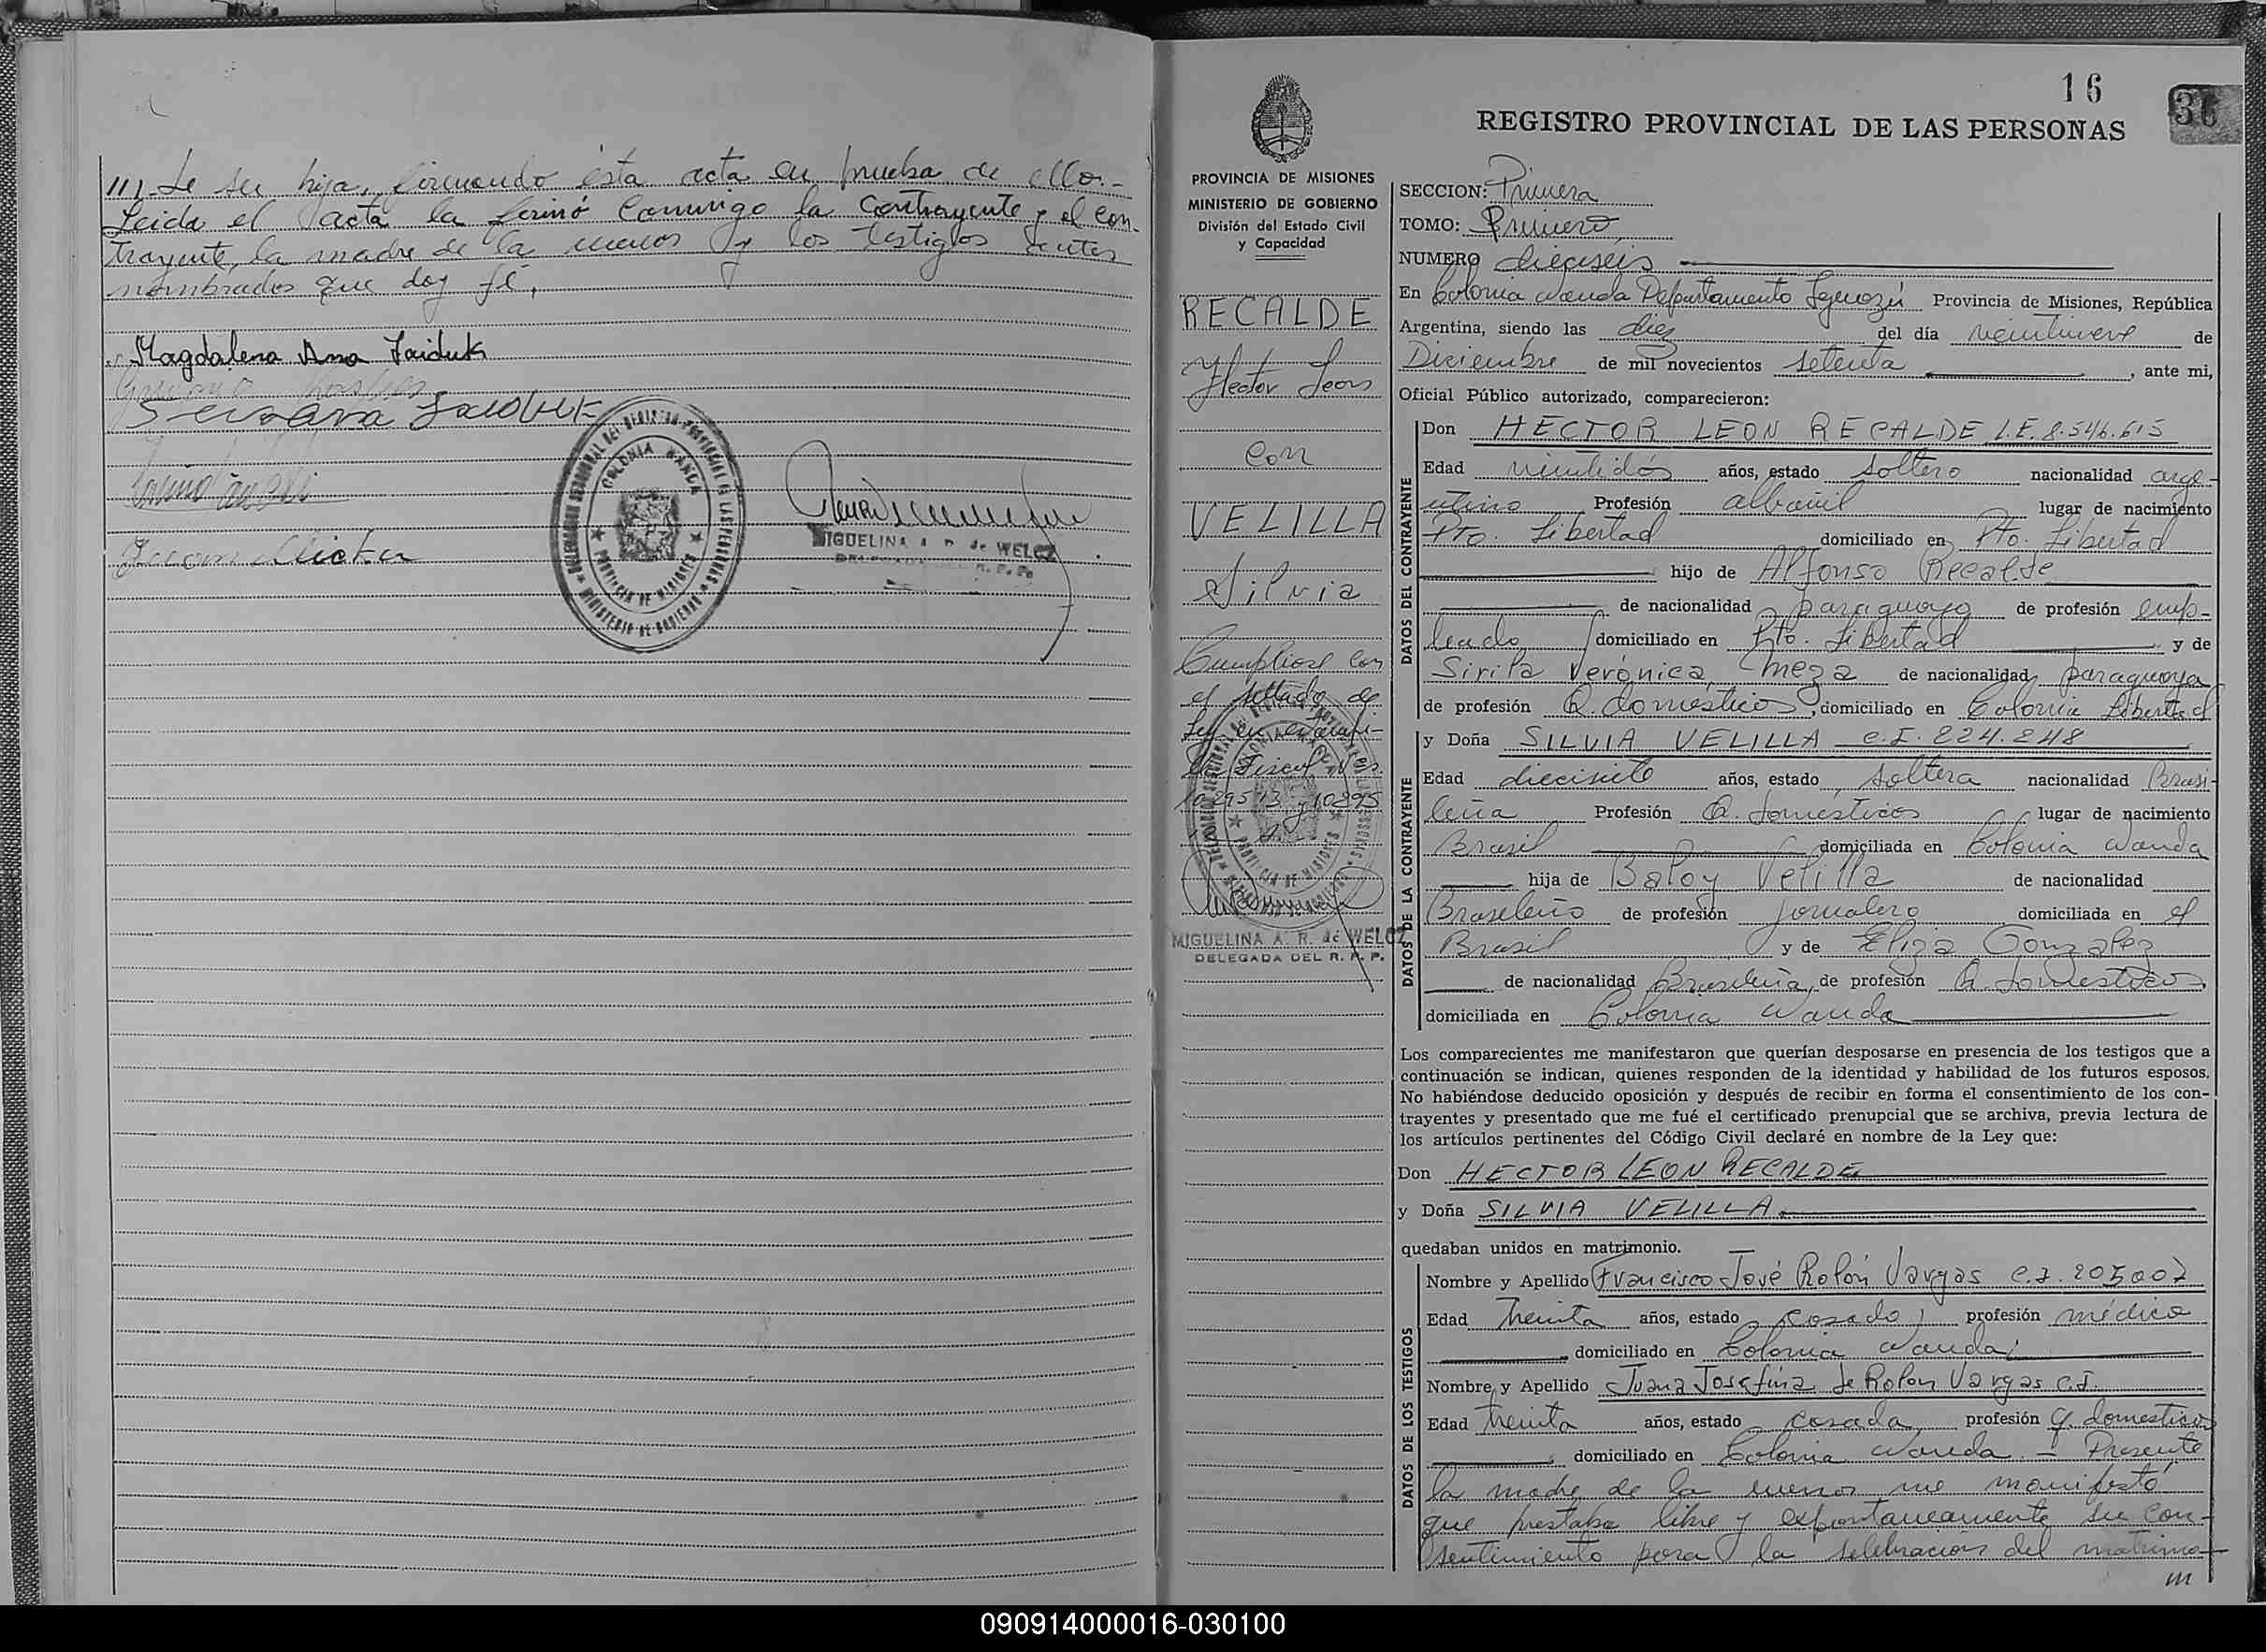 111. de su hija, firmando esta acta en prueba de ello.-
Leida el acta la firmó conmigo la contrayente y el con-
trayente, la madre de la menor y los testigos antes
nombrados que doy fé.
Magdalena Ana
MIGUELINA A. R. de WELCZ
COLONIA WANDA
PROVINCIA DE MISIONES
MINISTERIO DE GOBIERNO
16
36
REGISTRO PROVINCIAL DE LAS PERSONAS
PROVINCIA DE MISIONES
MINISTERIO DE GOBIERNO
División del Estado Civil
y Capacidad
RECALDE
Hector Leon
con
VELILLA
Silvia
Cumpliose con
el sellado de
Ley en
Fiscal
MIGUELINA A. R. de WELCZ
DELEGADA DEL R. P. P.
SECCION: Primera
TOMO: Primero
NUMERO dieciseis
En Colonia Wanda Departamento Iguazú Provincia de Misiones, República
Argentina, siendo las diez del día veintinueve de
Diciembre de mil novecientos setenta, ante mi,
Oficial Público autorizado, comparecieron:
DATOS DEL CONTRAYENTE
Don HECTOR LEON RECALDE L.E. 8.546.615
Edad veintidós años, estado soltero nacionalidad arge-
ntino Profesión albañil lugar de nacimiento
Pto. Libertad domiciliado en Pto. Libertad
hijo de Alfonso Recalde
de nacionalidad paraguayo de profesión emp-
leado domiciliado en Pto. Libertad y de
Sirila Verónica Meza de nacionalidad paraguaya
de profesión Q. domesticos, domiciliado en Colonia Libertad
DATOS DE LA CONTRAYENTE
y Doña SILVIA VELILLA C.I. 224.248
Edad diecisiete años, estado soltera nacionalidad Brasi-
leña Profesión Q. domesticos lugar de nacimiento
Brasil domiciliada en Colonia Wanda
hija de Baloy Velilla de nacionalidad
Brasileño de profesión jornalero domiciliada en el
Brasil y de Eliza Gonzalez
de nacionalidad Brasileña, de profesión Q. domesticos
domiciliada en Colonia Wanda
Los comparecientes me manifestaron que querían desposarse en presencia de los testigos que a
continuación se indican, quienes responden de la identidad y habilidad de los futuros esposos.
No habiéndose deducido oposición y después de recibir en forma el consentimiento de los con-
trayentes y presentado que me fué el certificado prenupcial que se archiva, previa lectura de
los artículos pertinentes del Código Civil declaré en nombre de la Ley que:
Don HECTOR LEON RECALDE
y Doña SILVIA VELILLA
quedaban unidos en matrimonio.
DATOS DE LOS TESTIGOS
Nombre y Apellido Francisco José Rolón Vargas C.I. 205002
Edad treinta años, estado casado, profesión médico
domiciliado en Colonia Wanda
Nombre y Apellido Juana Josefina de Rolon Vargas C.I.
Edad treinta años, estado casada profesión q. domesticos
domiciliado en Colonia Wanda - Presente
la madre de la menor me manifestó
que prestaba libre y espontaneamente su con-
sentimiento para la selebración del matrimo-
///
090914000016-030100